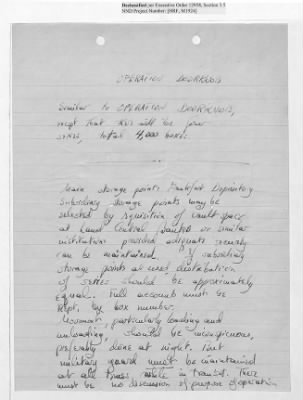 Declassified per Executive Order 12958, Section 3.5
NND Project Number: [NND, 361924]
OPERATION DOORKNOB
Similar to OPERATION DOORKNOB,
except that this will be four
series, total 4,000 boxes
Main storage point: Frankfurt Depository
Subsidiary storage points may be
selected by requisition of vault space
at Land Central Banks or similar
institutions provided adequate security
can be maintained. If subsidiary
storage points are used distribution
of series should be approximately
equal. Full account must be
kept, by box number.
Movement, particularly loading and
unloading, should be inconspicuous,
preferably done at night. But
military guard must be maintained
at all times, while in transit. There
must be no discussion of purpose of operation